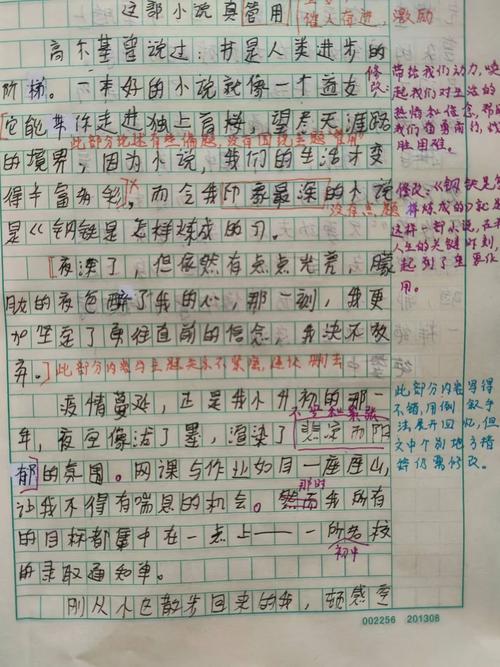 这部小说真管用
催人奋进，激励
高尔基曾说过：书是人类进步的
阶梯。一本好的小说就像一个益友
修改：
带给我们动力，唤
起我们对生活的
热情和信念，帮助
我们奋勇前行，战
胜困难。
它能带你走进独上高楼，望尽天涯路
此部分论述有些偏题，没有围绕主题“管用”
的境界，因为小说，我们的生活才变
得丰富多彩，而令我印象最深的小说
没有点题
是《钢铁是怎样炼成的》。
修改：《钢铁是怎
样炼成的》就是
这样一部小说，在我
人生的关键时刻，
起到了重要作
用。
夜深了，但依然有点点光亮，朦
胧的夜色醉了我的心，那一刻，我更
加坚定了勇往直前的信念，我决不放
弃。
此部分内容与主题关系不紧密，建议删去
疫情蔓延，正是我小升初的那一
不安和紧张
年，夜空像泼了墨，渲染了悲寂而阴
郁的氛围。网课与作业如同一座座山，
此部分内容写得
不错，用倒叙手
法展开回忆，但
文中个别地方措
辞仍需修改。
那时
让我不得有喘息的机会。然而我所有
的目标都集中在一点上——一所名校
初中
的录取通知单。
刚从小区散步回来的我，顿感空
002256 201308